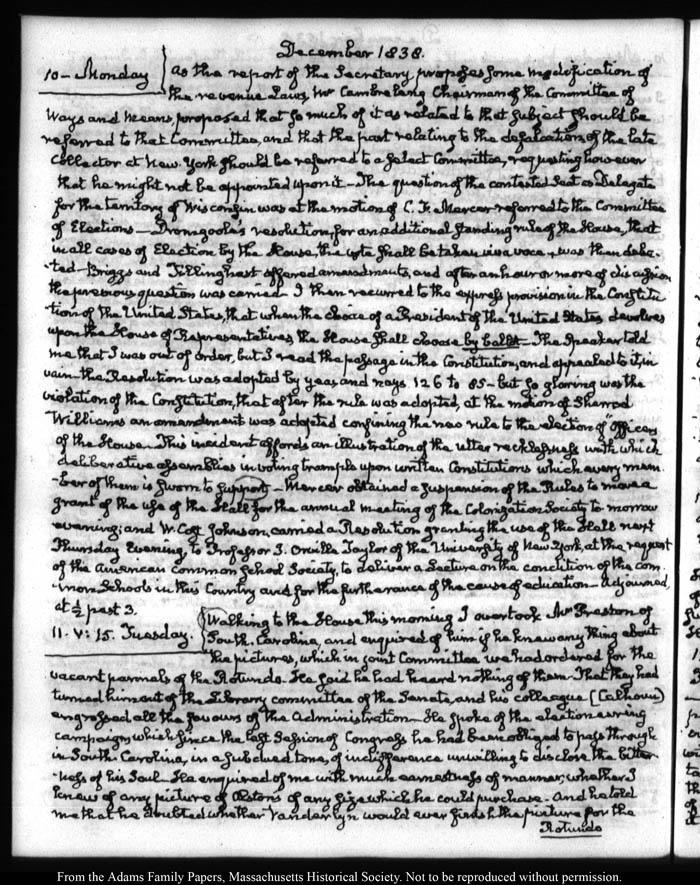 December 1838.
10 - Monday
As the report of the Secretary, proposes some modification of
the revenue Laws, Mr Cambreleng Chairman of the Committee of
Ways and Means, proposed that so much of it as related to that subject should be
referred to that Committee, and that the part relating to the defalcation of the late
Collector at New York should be referred to a select Committee, requesting however
that he might not be appointed upon it - The question of the contested seat as Delegate
for the territory of Wisconsin was at the motion of C. F. Mercer referred to the Committee
of Elections - Dromgoole's resolution, for an additional standing rule of the House, that
in all cases of Election by the House, the vote shall be taken viva voce, was then deba-
ted - Briggs and Tillinghast offered amendments, and after an hour or more of discussion
the previous question was carried - I then recurred to the express provision in the Constitu-
tion of the United States, that when the choice of a President of the United States devolves
upon the House of Representatives the House shall choose by ballot - The Speaker told
me that I was out of order, but I read the passage in the Constitution, and appealed to it, in
vain - the Resolution was adopted by yeas and nays 126 to 85 - but so glaring was the
violation of the Constitution, that after the rule was adopted, at the motion of Sherrod
Williams an amendment was adopted confining the new rule to the election of "officers
of the House - This incident affords an illustration of the utter recklessness with which
deliberative assemblies in voting trample upon written Constitutions which every mem-
-ber of them is sworn to support - Mercer obtained a suspension of the Rules to move a
grant of the use of the Hall for the annual meeting of the Colonization Society to morrow
evening; and W. Cost Johnson, carried a Resolution granting the use of the Hall next
Thursday Evening, to Professor J. Orville Taylor of the University of New York, at the request
of the American Common School Society, to deliver a Lecture on the condition of the com-
-mon Schools in this Country and for the furtherance of the cause of education - Adjourned,
at ½ past 3.
11. V: 15. Tuesday.
Walking to the House this morning I overtook Mr Preston of
South Carolina, and enquired of him if he knew any thing about
the pictures, which in joint Committee we had ordered for the
vacant pannels of the Rotunda - He said he had heard nothing of them - That they had
turned him out of the Library committee of the Senate, and his colleague [Calhoun]
engrossed all the favours of the Administration - He spoke of the electioneering
campaign which since the last Session of Congress he had been obliged to pass through
in South Carolina, in a subdued tone, of indifference unwilling to disclose the bitter-
-ness of his Soul - He enquired of me with much earnestness of manner, whether I
knew of any picture of Alston's of any size which he could purchase - And he told
me that he doubted whether Vanderlyn would ever finish the picture for the
Rotunda
From the Adams Family Papers, Massachusetts Historical Society. Not to be reproduced without permission.